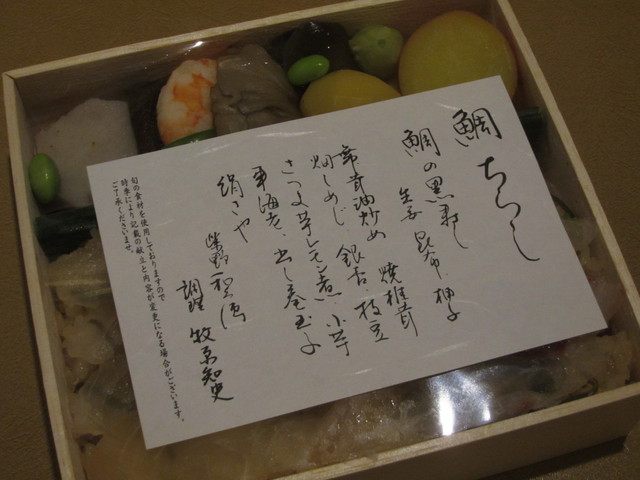 鯛ちらし
鯛の黒寿し
生姜 昆布 柚子
焼椎茸
舞茸油炒め 銀杏 枝豆
畑しめじ 小芋
さつま芋レモン煮
車海老 出し巻玉子
絹さや
紫野 和久傳
調理 牧京知史
旬の食材を使用しておりますので
時季により記載の献立と内容が変更になる場合がございます。
ご了承くださいませ。